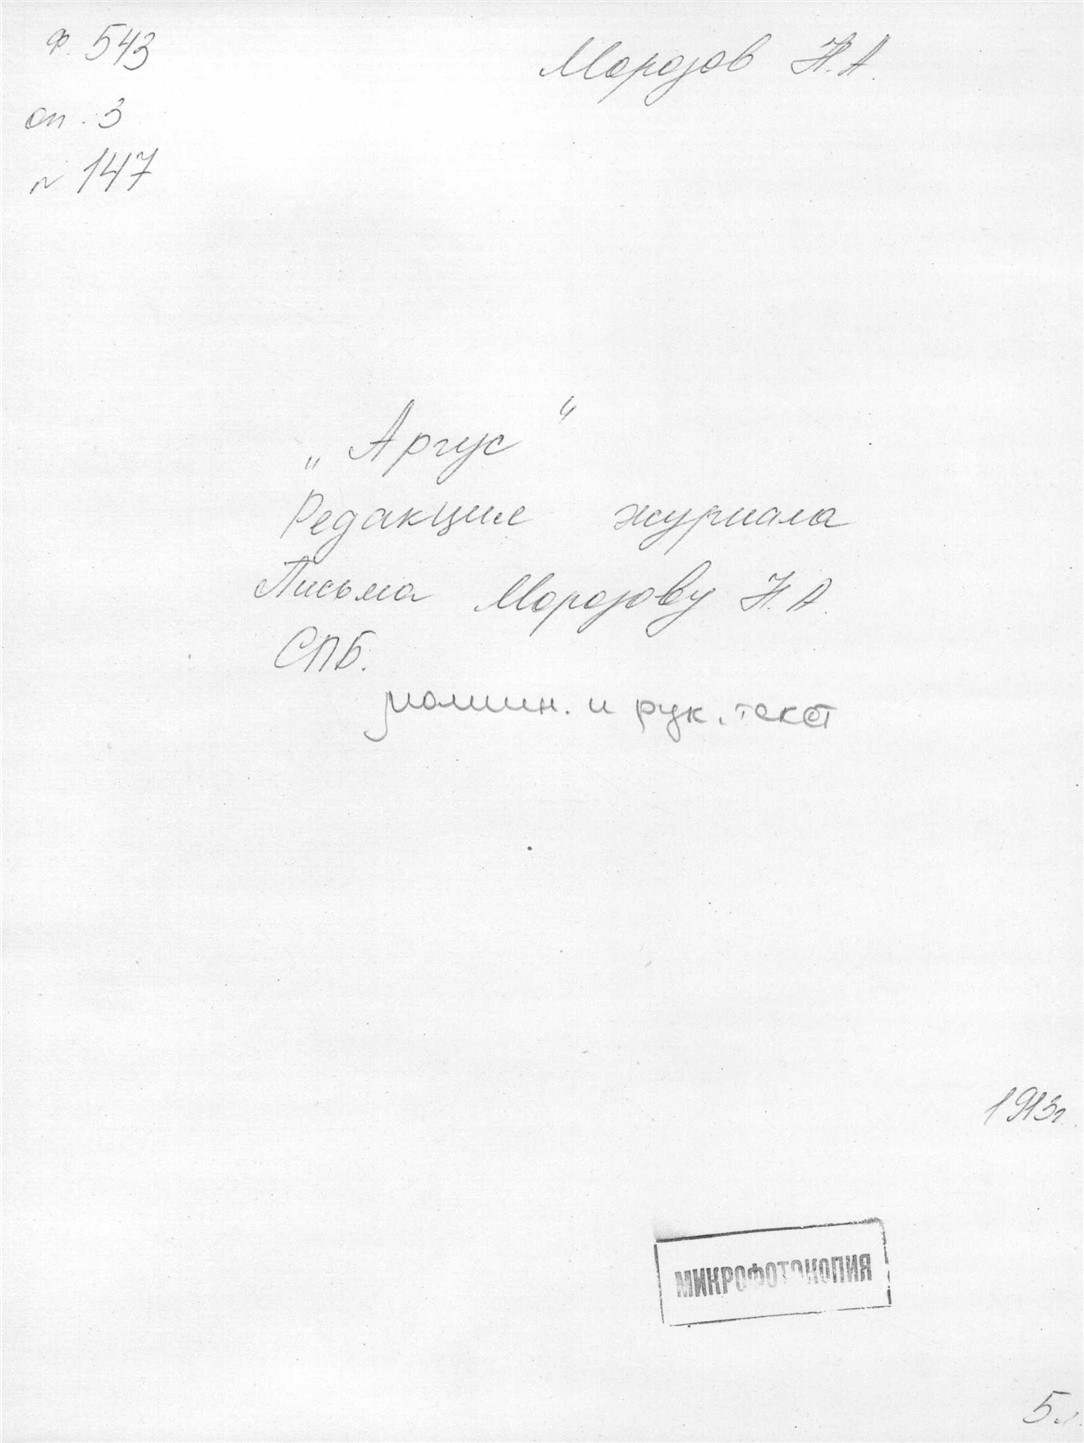 ф. 543
Морозов Н.А.
оп. 3
№ 147
„Аргус“
Редакция журнала
Письма Морозову Н.А.
СПБ.
машин. и рук. текст
1913г.
МИКРОФОТОКОПИЯ
5 л.